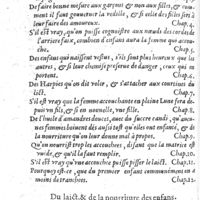 De faire bonne mesure aux garçons & non aux filles, & com-
ment il faut gouverner la vedille, & si celle des filles sert à
leur faire des amoureux. Chap.4.
S'il est vray, qu'on puisse cognoistre aux nœuds des cordes de
l'arriere-faix, combien d'enfans aura la femme qui accou-
che. Chap.5.
Des enfans qui naissent vestus, s'ils sont plus heureux que les
autres, & si leur chemise preserve de danger, ceux qui en
portent. Chap.6.
Des Harpies qu'on dit voler, & s'attacher aux courtines du
lict. Chap.7.
S'il est vray que la femme accouchant en pleine Lune fera de-
puis un fils, & si en nouvelle, une fille. Chap.8.
De l'huile d'amandes douces, avec du succre candi, qu'aucu-
nes femmes boivent dés aussi tost qu'elles ont enfanté, & de
la nourriture qu'on leur donne. Chap.9.
Qu'on nourrit trop les accouchees, & que leur matrice est
vuide, & qu'il la faut remplir. Chap.10.
S'il est vray qu'une accouchee puisse pisser le laict. Chap.11.
Pourquoy est-ce, que du premier enfantement on a
moins de tranchees. Chap.12.
Du laict, & de la nourriture des enfans.